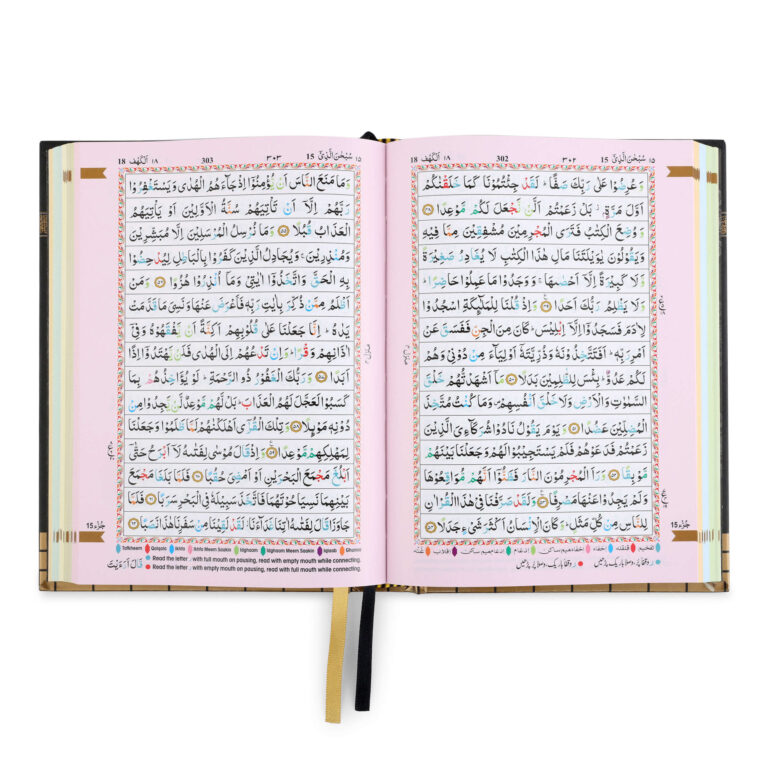 18 اَلْكَهْف ١٨ 302 ٣٠٢ 15 سُبْحٰنَ الَّذِيْٓ ١٥
وَعُرِضُوْا عَلٰى رَبِّكَ صَفًّا ؕ لَقَدْ جِئْتُمُوْنَا كَمَا خَلَقْنٰكُمْ
اَوَّلَ مَرَّةٍۭ ؗ بَلْ زَعَمْتُمْ اَلَّنْ نَّجْعَلَ لَكُمْ مَّوْعِدًا ﴿٤٨﴾
وَ وُضِعَ الْكِتٰبُ فَتَرَى الْمُجْرِمِيْنَ مُشْفِقِيْنَ مِمَّا فِيْهِ
وَيَقُوْلُوْنَ يٰوَيْلَتَنَا مَالِ هٰذَا الْكِتٰبِ لَا يُغَادِرُ صَغِيْرَةً
وَّلَا كَبِيْرَةً اِلَّآ اَحْصٰىهَا ۚ وَوَجَدُوْا مَا عَمِلُوْا حَاضِرًا ؕ
وَلَا يَظْلِمُ رَبُّكَ اَحَدًا ﴿٤٩﴾ وَاِذْ قُلْنَا لِلْمَلٰٓئِكَةِ اسْجُدُوْا
لِاٰدَمَ فَسَجَدُوْٓا اِلَّآ اِبْلِيْسَ ؕ كَانَ مِنَ الْجِنِّ فَفَسَقَ عَنْ
اَمْرِ رَبِّهٖ ؕ اَفَتَتَّخِذُوْنَهٗ وَذُرِّيَّتَهٗٓ اَوْلِيَآءَ مِنْ دُوْنِيْ وَهُمْ
لَكُمْ عَدُوٌّ ؕ بِئْسَ لِلظّٰلِمِيْنَ بَدَلًا ﴿٥٠﴾ مَآ اَشْهَدْتُّهُمْ خَلْقَ
السَّمٰوٰتِ وَالْاَرْضِ وَلَا خَلْقَ اَنْفُسِهِمْ ۪ وَمَا كُنْتُ مُتَّخِذَ
الْمُضِلِّيْنَ عَضُدًا ﴿٥١﴾ وَيَوْمَ يَقُوْلُ نَادُوْا شُرَكَآءِيَ الَّذِيْنَ
زَعَمْتُمْ فَدَعَوْهُمْ فَلَمْ يَسْتَجِيْبُوْا لَهُمْ وَجَعَلْنَا بَيْنَهُمْ
مَّوْبِقًا ﴿٥٢﴾ وَرَاَ الْمُجْرِمُوْنَ النَّارَ فَظَنُّوْٓا اَنَّهُمْ مُّوَاقِعُوْهَا
وَلَمْ يَجِدُوْا عَنْهَا مَصْرِفًا ﴿٥٣﴾ وَلَقَدْ صَرَّفْنَا فِيْ هٰذَا الْقُرْاٰنِ
لِلنَّاسِ مِنْ كُلِّ مَثَلٍ ؕ وَكَانَ الْاِنْسَانُ اَكْثَرَ شَيْءٍ جَدَلًا ﴿٥٤﴾
15 جُزْء
18 اَلْكَهْف ١٨ 303 ٣٠٣ 15 سُبْحٰنَ الَّذِيْٓ ١٥
وَمَا مَنَعَ النَّاسَ اَنْ يُّؤْمِنُوْٓا اِذْ جَآءَهُمُ الْهُدٰى وَيَسْتَغْفِرُوْا
رَبَّهُمْ اِلَّآ اَنْ تَاْتِيَهُمْ سُنَّةُ الْاَوَّلِيْنَ اَوْ يَاْتِيَهُمُ
الْعَذَابُ قُبُلًا ﴿٥٥﴾ وَمَا نُرْسِلُ الْمُرْسَلِيْنَ اِلَّا مُبَشِّرِيْنَ
وَمُنْذِرِيْنَ ۚ وَيُجَادِلُ الَّذِيْنَ كَفَرُوْا بِالْبَاطِلِ لِيُدْحِضُوْا
بِهِ الْحَقَّ وَاتَّخَذُوْٓا اٰيٰتِيْ وَمَآ اُنْذِرُوْا هُزُوًا ﴿٥٦﴾ وَمَنْ
اَظْلَمُ مِمَّنْ ذُكِّرَ بِاٰيٰتِ رَبِّهٖ فَاَعْرَضَ عَنْهَا وَنَسِيَ مَا قَدَّمَتْ
يَدٰهُ ؕ اِنَّا جَعَلْنَا عَلٰى قُلُوْبِهِمْ اَكِنَّةً اَنْ يَّفْقَهُوْهُ وَفِيْٓ
اٰذَانِهِمْ وَقْرًا ؕ وَاِنْ تَدْعُهُمْ اِلَى الْهُدٰى فَلَنْ يَّهْتَدُوْٓا اِذًا
اَبَدًا ﴿٥٧﴾ وَرَبُّكَ الْغَفُوْرُ ذُو الرَّحْمَةِ ؕ لَوْ يُؤَاخِذُهُمْ بِمَا
كَسَبُوْا لَعَجَّلَ لَهُمُ الْعَذَابَ ؕ بَلْ لَّهُمْ مَّوْعِدٌ لَّنْ يَّجِدُوْا مِنْ
دُوْنِهٖ مَوْىِٕلًا ﴿٥٨﴾ وَتِلْكَ الْقُرٰٓى اَهْلَكْنٰهُمْ لَمَّا ظَلَمُوْا وَجَعَلْنَا
لِمَهْلِكِهِمْ مَّوْعِدًا ﴿٥٩﴾ وَاِذْ قَالَ مُوْسٰى لِفَتٰىهُ لَآ اَبْرَحُ حَتّٰٓى
اَبْلُغَ مَجْمَعَ الْبَحْرَيْنِ اَوْ اَمْضِيَ حُقُبًا ﴿٦٠﴾ فَلَمَّا بَلَغَا مَجْمَعَ
بَيْنِهِمَا نَسِيَا حُوْتَهُمَا فَاتَّخَذَ سَبِيْلَهٗ فِي الْبَحْرِ سَرَبًا ﴿٦١﴾ فَلَمَّا
جَاوَزَا قَالَ لِفَتٰىهُ اٰتِنَا غَدَآءَنَا ؗ لَقَدْ لَقِيْنَا مِنْ سَفَرِنَا هٰذَا نَصَبًا ﴿٦٢﴾
15 جُزْء
Tafkheem Qalqala Ikhfa Ikhfa Meem Saakin Idghaam Idghaam Meem Saakin Iqlaab Ghunna
Read the letter ر with full mouth on pausing, read with empty mouth while connecting.
Read the letter ر with empty mouth on pausing, read with full mouth while connecting.
قَالَ اَرَءَيْتَ